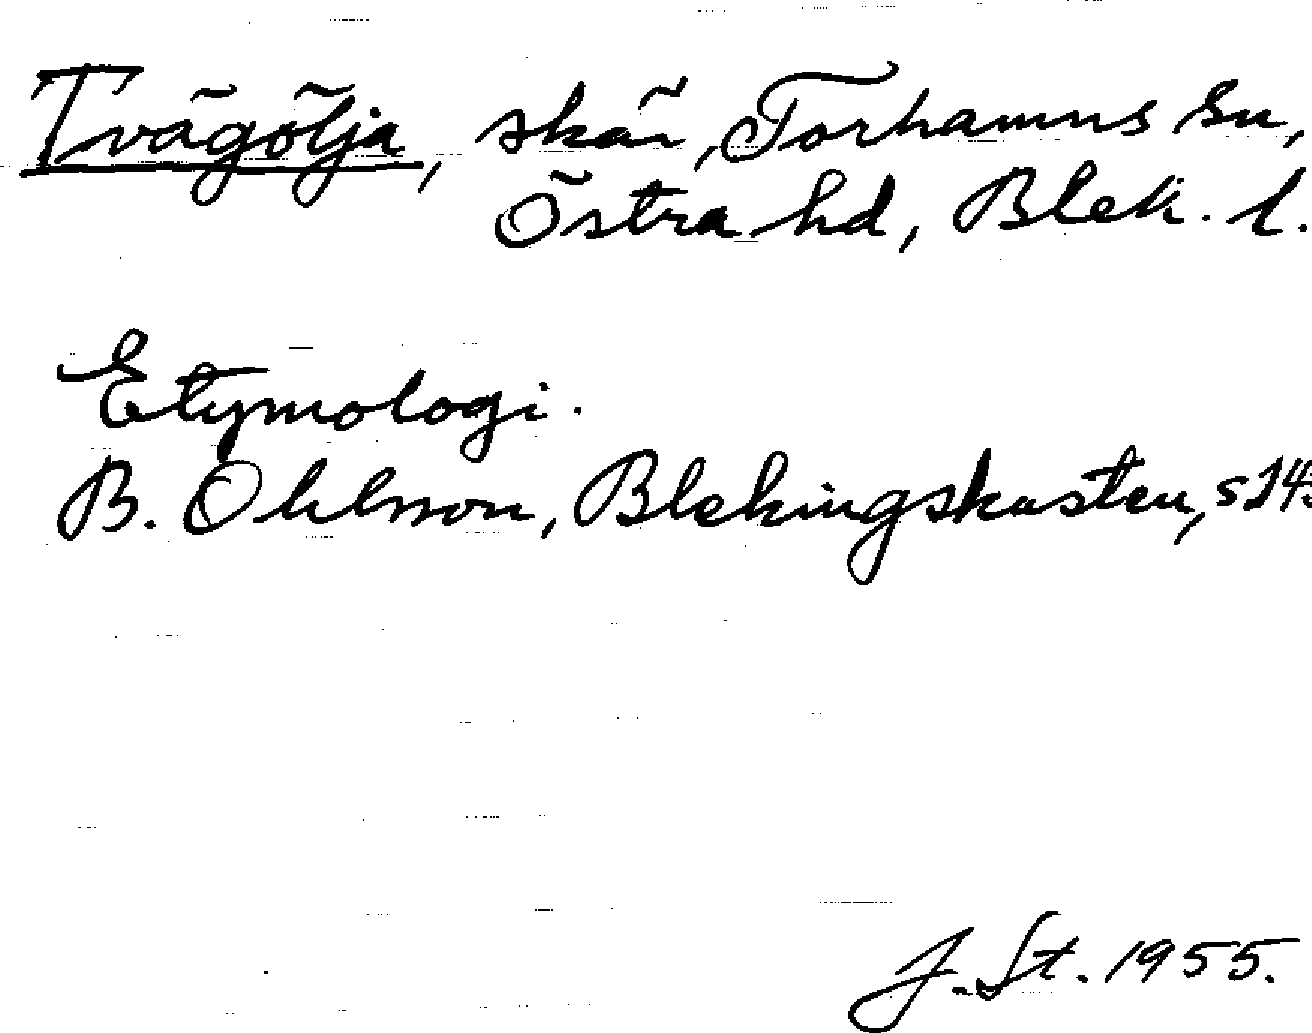 Tvägölja, skär, Torhamns sn,
Östra hd, Blek. l.
Etymologi.
B. Ohlsson, Blekingskusten, s 143
J. St. 1955.